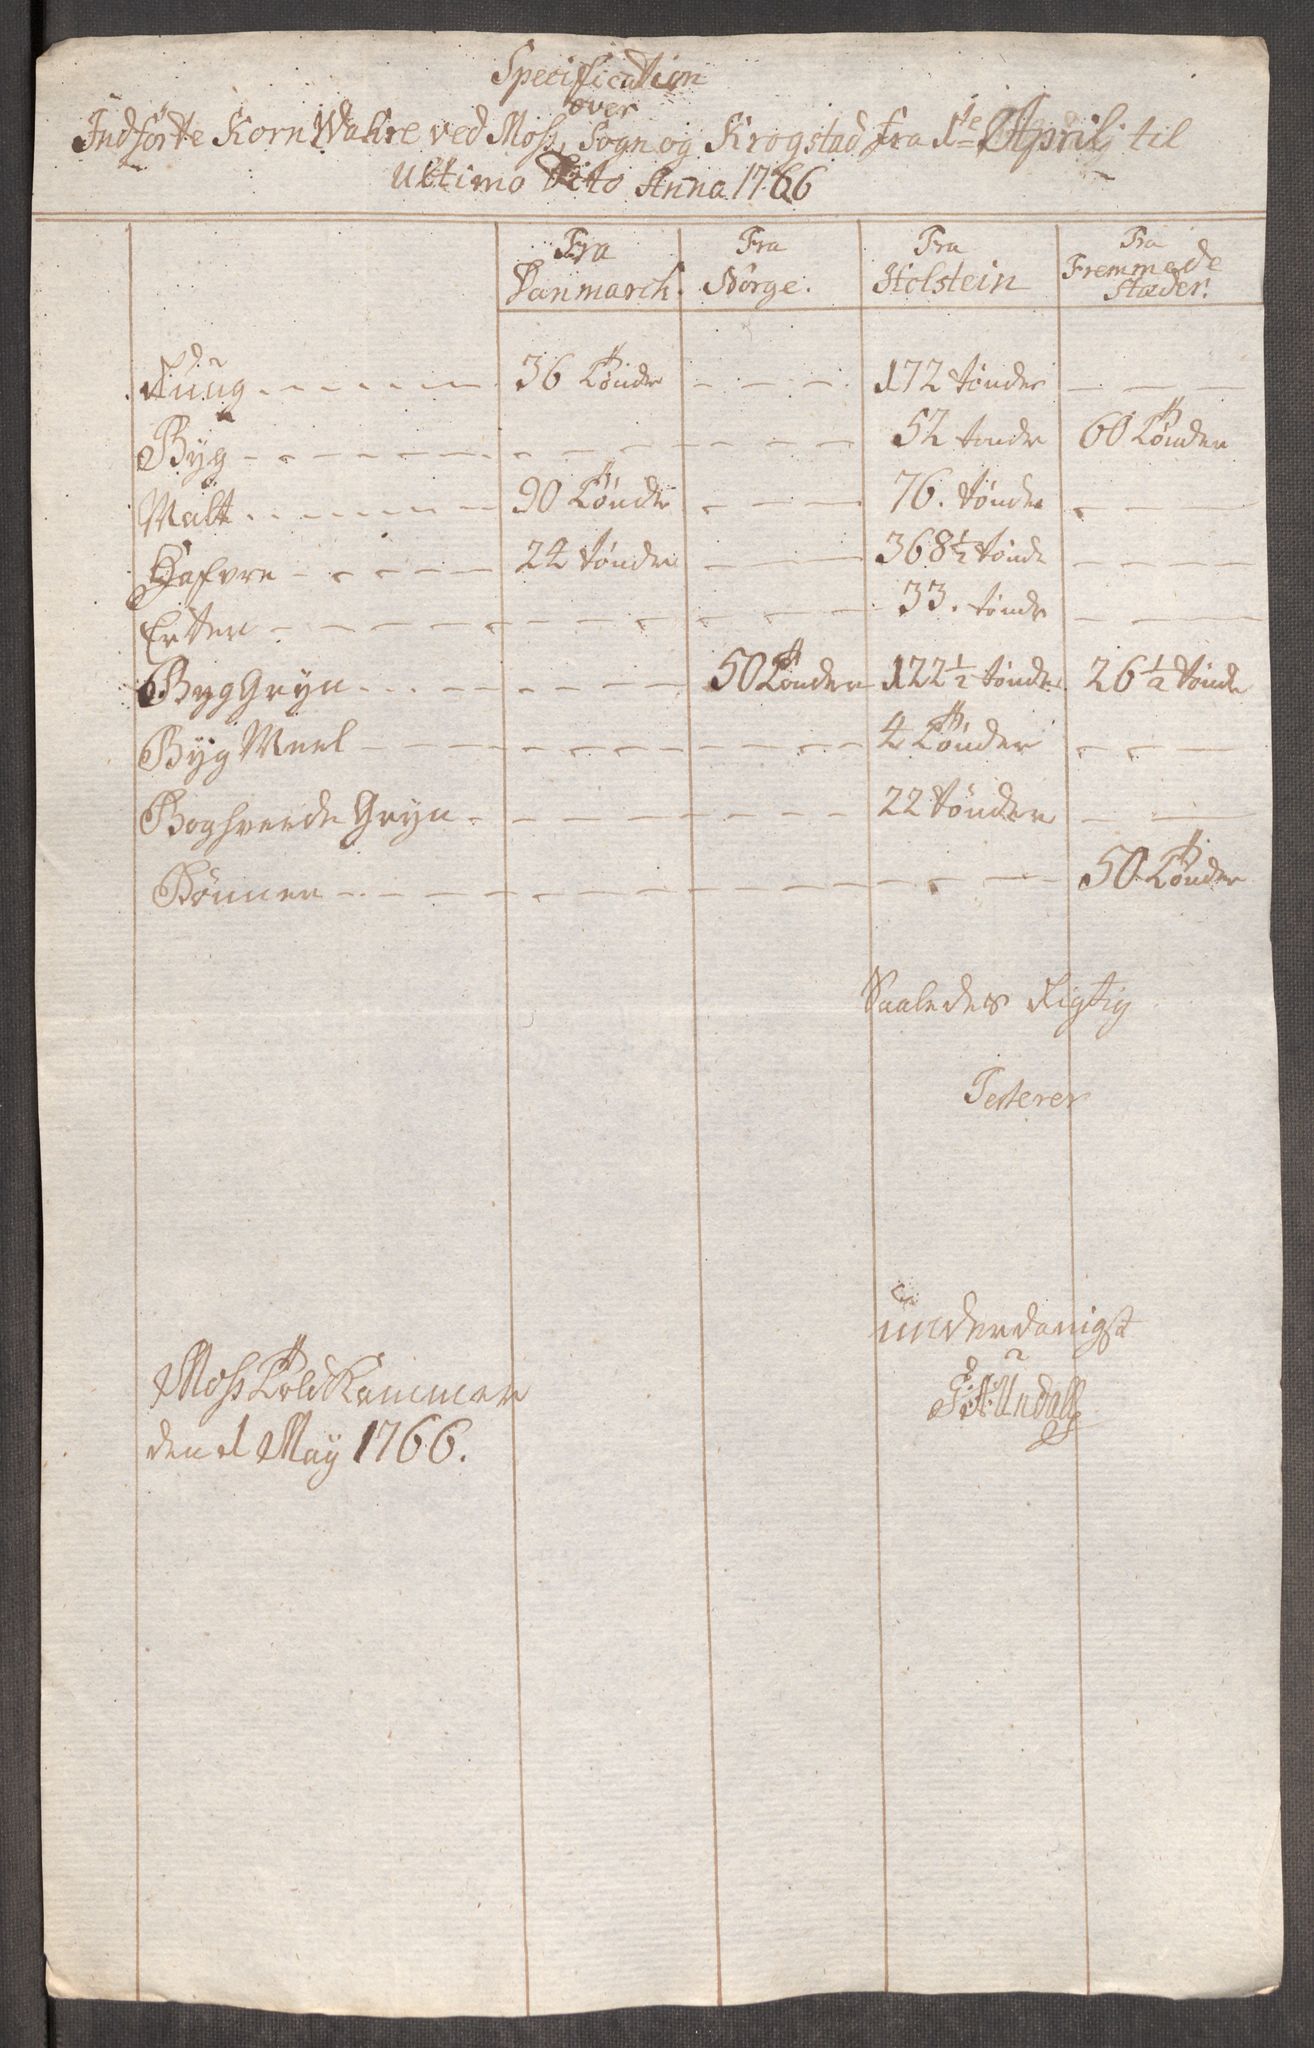 Specification
over
Indførte Korn Wahre ved Moss, Sogn og Krogstad fra 1te April til
Ultimo Dito Anno 1766
Fra Danmarch. Fra Norge. Fra Holstein Fra Fremmede Stæder.
Ruug 36 Tønder 172 tønder
Byg 52 tøndr 60 Tønder
Malt 90 Tønder 76. tønder
Hafvre 24 tønder 368 1/2 tønde
Erter 33. tønde
Byg Gryn 50 Tønder 122 1/2 tønder 26 1/2 tønde
Byg Meel 4 Tønder
Boghvede Gryn 22 tønder
Bønner 50 Tønder
Saaledes Rigtig
Testerer
underdanigst
Moss Told Kammer
den 1 May 1766.